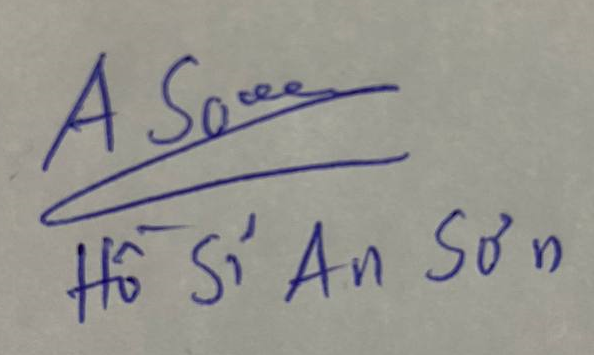 A Sơn
Hồ Sĩ An Sơn